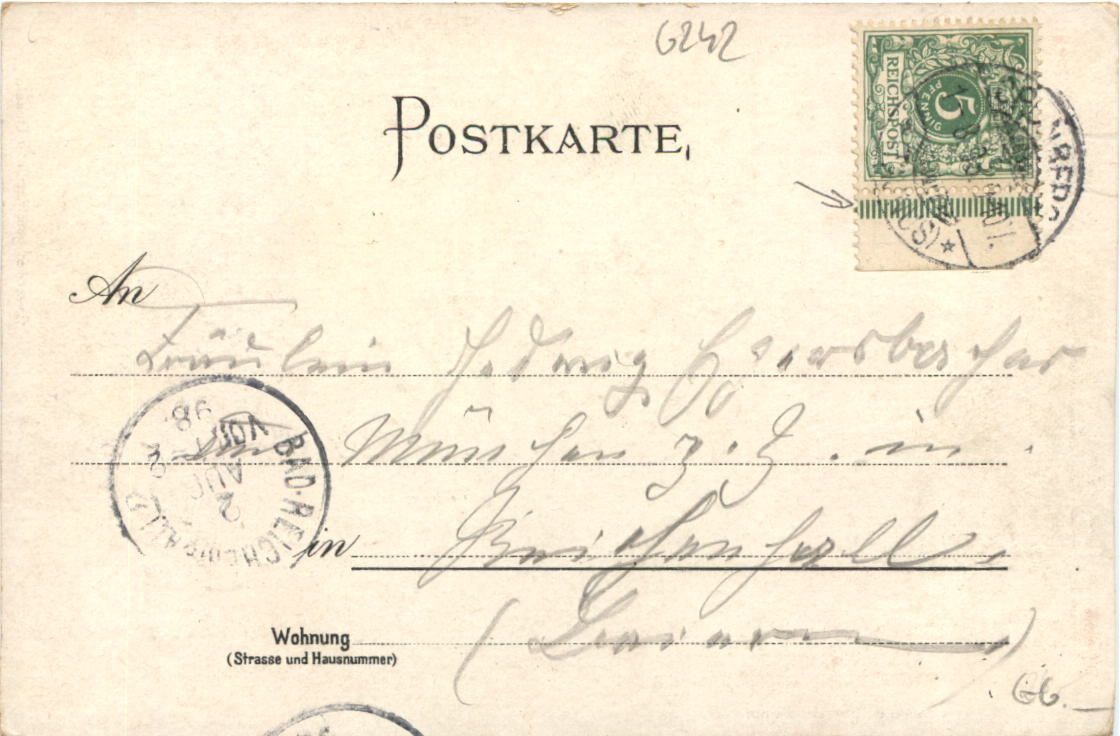 6242
POSTKARTE
REICHSPOST
5
PFENNIG
An
Fräulein Hedwig
aus München z. Z. in
in Reichenhall
Wohnung (Baiern)
(Strasse und Hausnummer)
BAD-REICHENHALL
2
AUG
VOR
98
66.